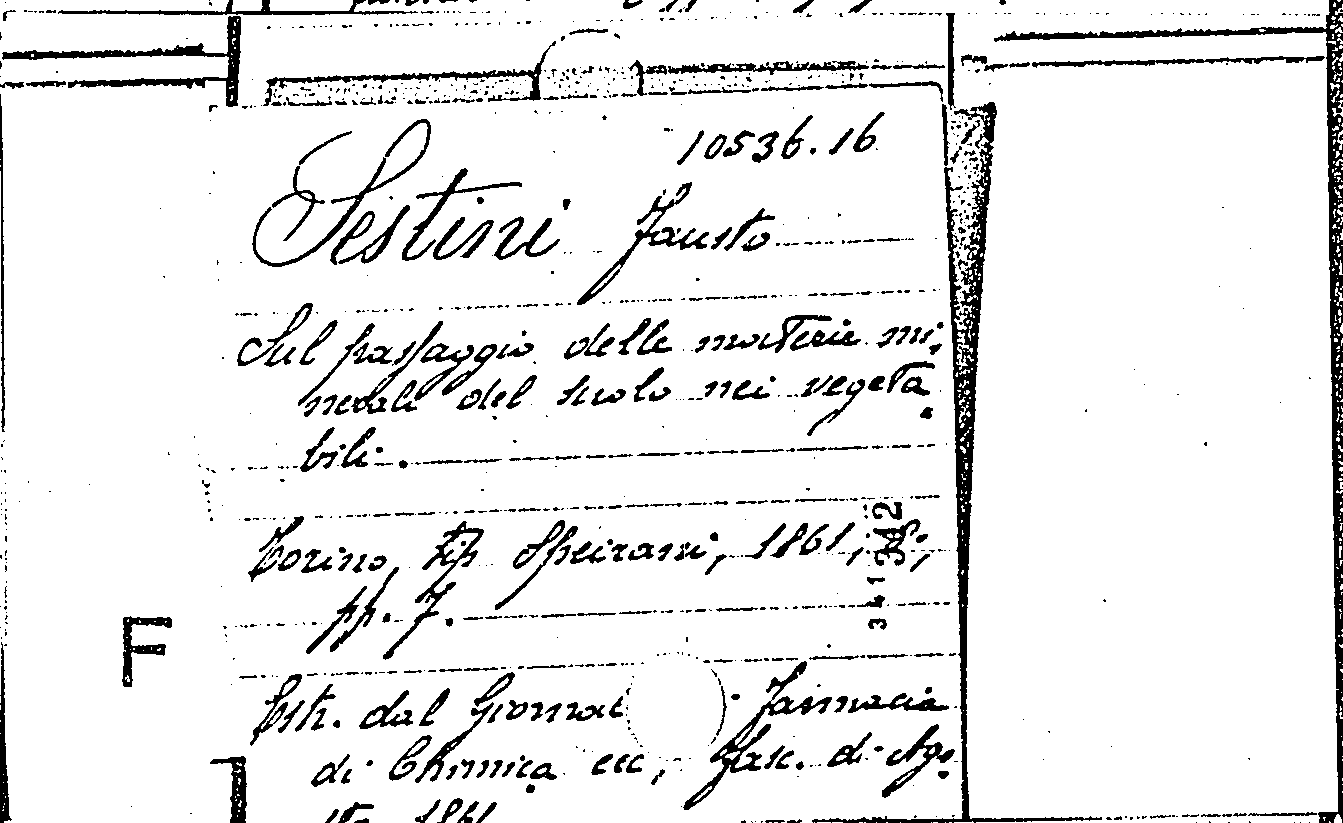 10536.16
Sestini Fausto
Sul passaggio delle materie mi,
nerali del suolo nei vegeta
bili.
Torino, tip Speirani, 1861, 8°,
pp. 7.
342
341
F
Estr. dal Giornal Farmacia
di Chimica ecc, fasc. di Ago
sto 1861